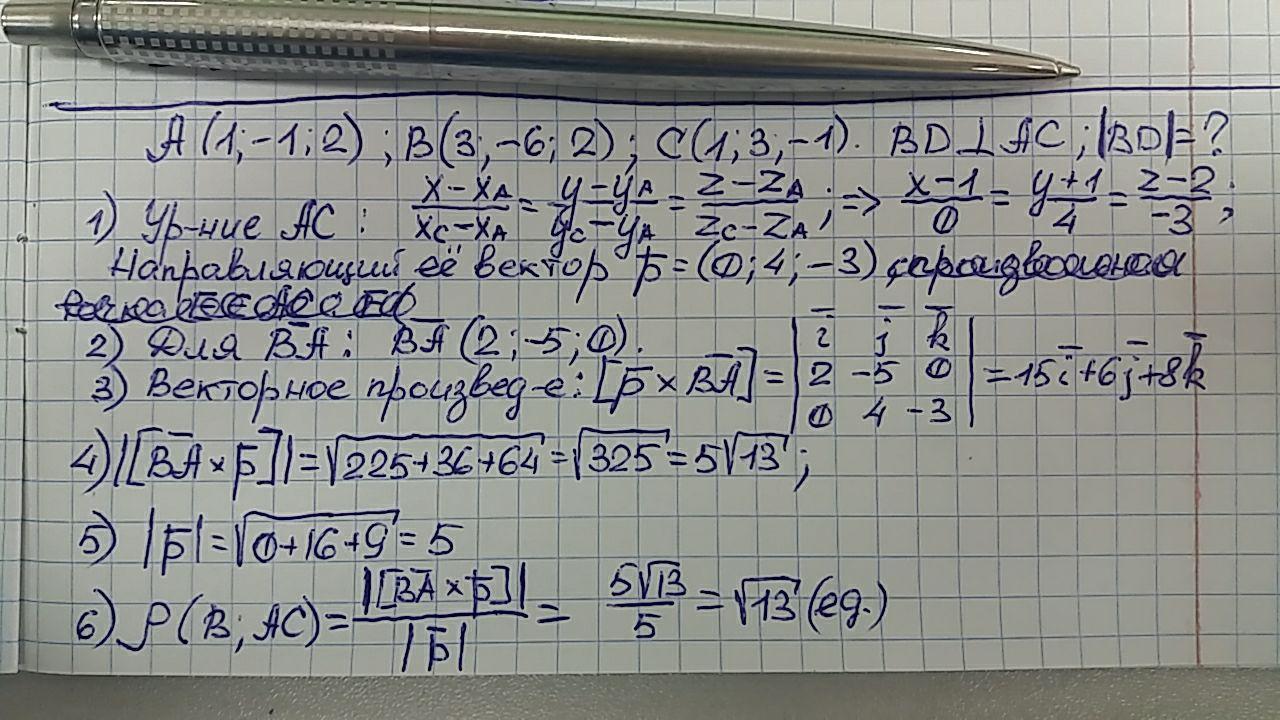 A(1;-1;2); B(3;-6;2); C(1;3;-1). BD⊥AC; |BD|=?
1) Ур-ние AC: (x-x_A)/(x_C-x_A) = (y-y_A)/(y_C-y_A) = (z-z_A)/(z_C-z_A); ⇒ (x-1)/0 = (y+1)/4 = (z-2)/-3;
Направляющий её вектор p̅=(0;4;-3)
2) Для B̅A̅: B̅A̅(2;-5;0).
3) Векторное произвед-е: [p̅×B̅A̅]= |i̅ j̅ k̅; 2 -5 0; 0 4 -3| =15i̅+6j̅+8k̅
4) |[B̅A̅×p̅]|=√(225+36+64)=√325=5√13;
5) |p̅|=√(0+16+9)=5
6) ρ(B; AC)= |[B̅A̅×p̅]|/|p̅| = 5√13/5 = √13 (ед.)